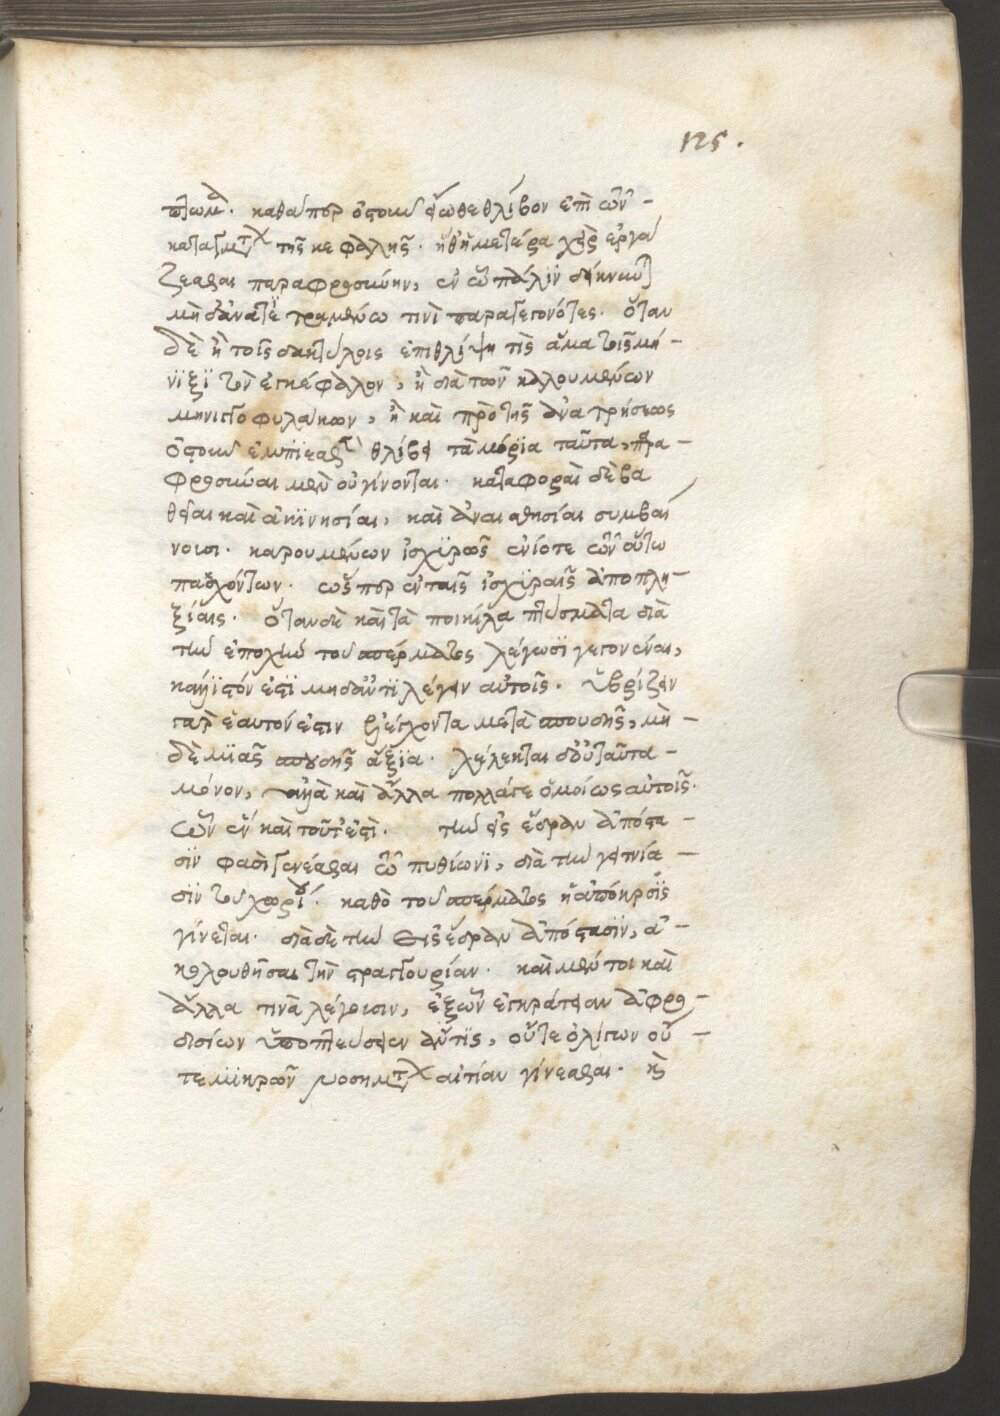 125.
πτωμα. καθάπερ ὀστοῦν εἴωθε θλίβον ἐπὶ τῶν
καταγμάτων τῆς κεφαλῆς. ἢ ἡ ἡμετέρα χεὶρ ἐργά
ζεσθαι παραφροσύνην, ἐν ᾧ πάλιν
μὴ δύναται τινὶ παραγεγονότες. ὅταν
δὲ ἢ τοῖς δακτύλοις ἐπιθλίψῃ τὶς ἅμα τοῖς μή
νιξι τὸν ἐγκέφαλον, ἢ διὰ τῶν καλουμένων
μηνιγγοφυλάκων, ἢ καὶ πρὸ τῆς ἀνατρήσεως
ὀστοῦν ἐμπιεσθὲν θλίβει τὰ μόρια ταῦτα, παρα
φροσύναι μὲν οὐ γίνονται. καταφοραὶ δὲ βα
θεῖαι καὶ ἀκινησίαι, καὶ ἀναισθησίαι συμβαί
νουσι. καρουμένων ἰσχυρῶς ἐνίοτε τῶν οὕτω
παθόντων. ὥσπερ ἐν ταῖς ἰσχυραῖς ἀποπλη
ξίαις. ὅταν δὲ καὶ τὰ ποικίλα πτύσματα διὰ
τὴν ἐποχὴν τοῦ σπέρματος λέγωσι γεγονέναι,
κάλλιστόν ἐστι μηδ' ἀντιλέγειν αὐτοῖς. ὑβρίζειν
γὰρ ἑαυτόν ἐστιν ἐλέγχοντα μετὰ σπουδῆς, μη
δὲ μιᾶς σπουδῆς ἄξια. λέλεκται δ' οὐ ταῦτα
μόνον, ἀλλὰ καὶ ἄλλα πολλά γε ὁμοίως αὐτοῖς.
ὧν ἓν καὶ τοῦτ' ἐστί. τὴν εἰς ἕδραν ἀπόστα
σιν φασὶ γενέσθαι τῷ πυθίωνι, διὰ τὴν γειτνία
σιν τοῦ χωρίου. καθὸ τοῦ σπέρματος ἡ ἀπόκρισις
γίνεται. διὰ δὲ τὴν εἰς ἕδραν ἀπόστασιν, ἀ
κολουθῆσαι τὴν στραγγουρίαν. καὶ μέν τοι καὶ
ἄλλα τινὰ λέγουσιν, ἐξ ὧν ἐγκράτειαν ἀφρο
δισίων ὑποπτεύσειεν ἄν τις, οὔτε ὀλίγων οὔ
τε μικρῶν νοσημάτων αἰτίαν γίνεσθαι. ἢ